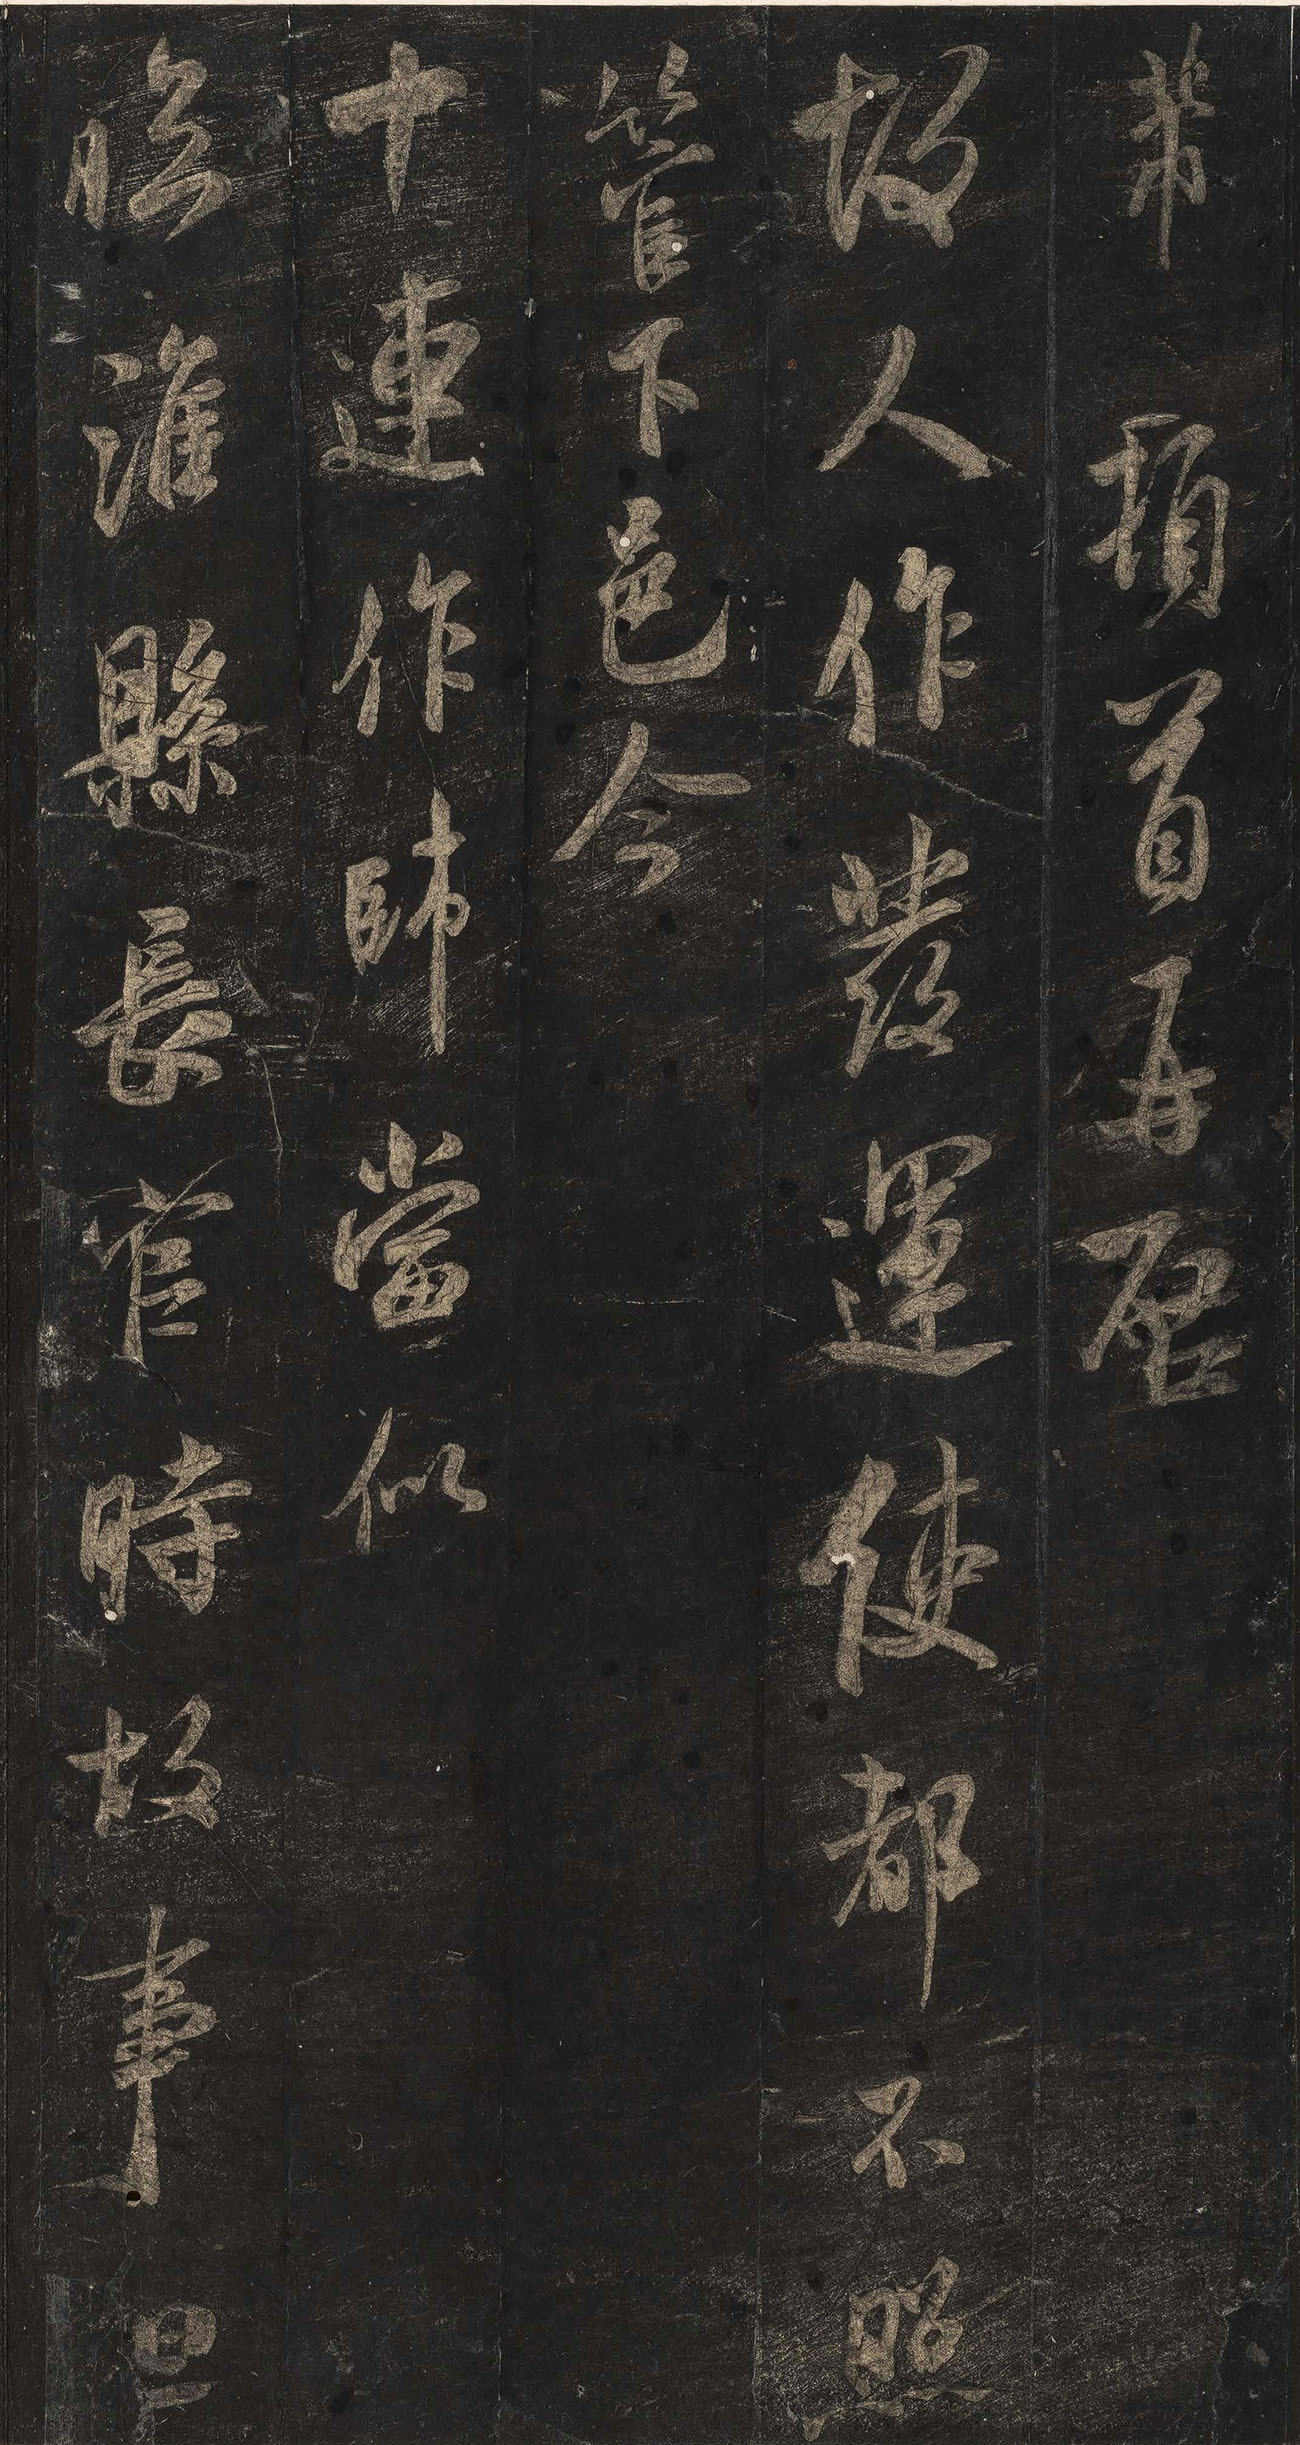 芾頓首再啟
故人作發運使都不照
管下邑令
十連作帥當似
臨淮縣長官時故事